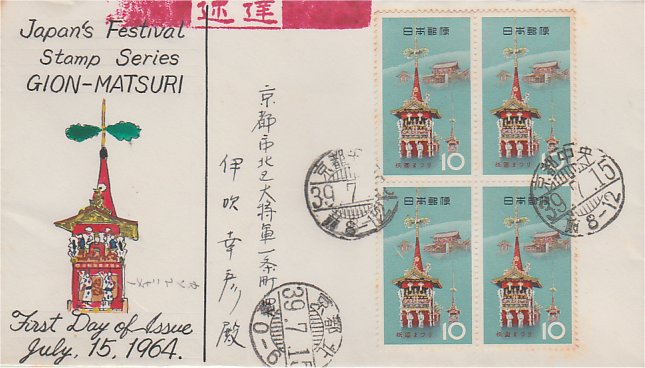 速達
Japan's Festival
Stamp Series
GION-MATSURI
First Day of Issue
July, 15, 1964.
京都市北区大将軍一条町
伊吹幸彦殿
日本郵便
祇園まつり
10
日本郵便
祇園まつり
10
日本郵便
祇園まつり
10
日本郵便
祇園まつり
10
京都中央
39.7.15
前8-12
京都中央
39.7.15
前8-12
京都北
39.7.15
0-6